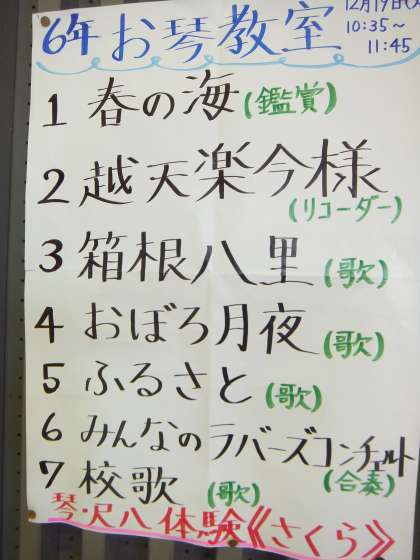 6年お琴教室
12月19日(火
10:35～
11:45
1 春の海(鑑賞)
2 越天楽今様
(リコーダー)
3 箱根八里(歌)
4 おぼろ月夜(歌)
5 ふるさと(歌)
6 みんなのラバーズコンチェルト
(合奏)
7 校歌(歌)
琴・尺八体験《さくら》